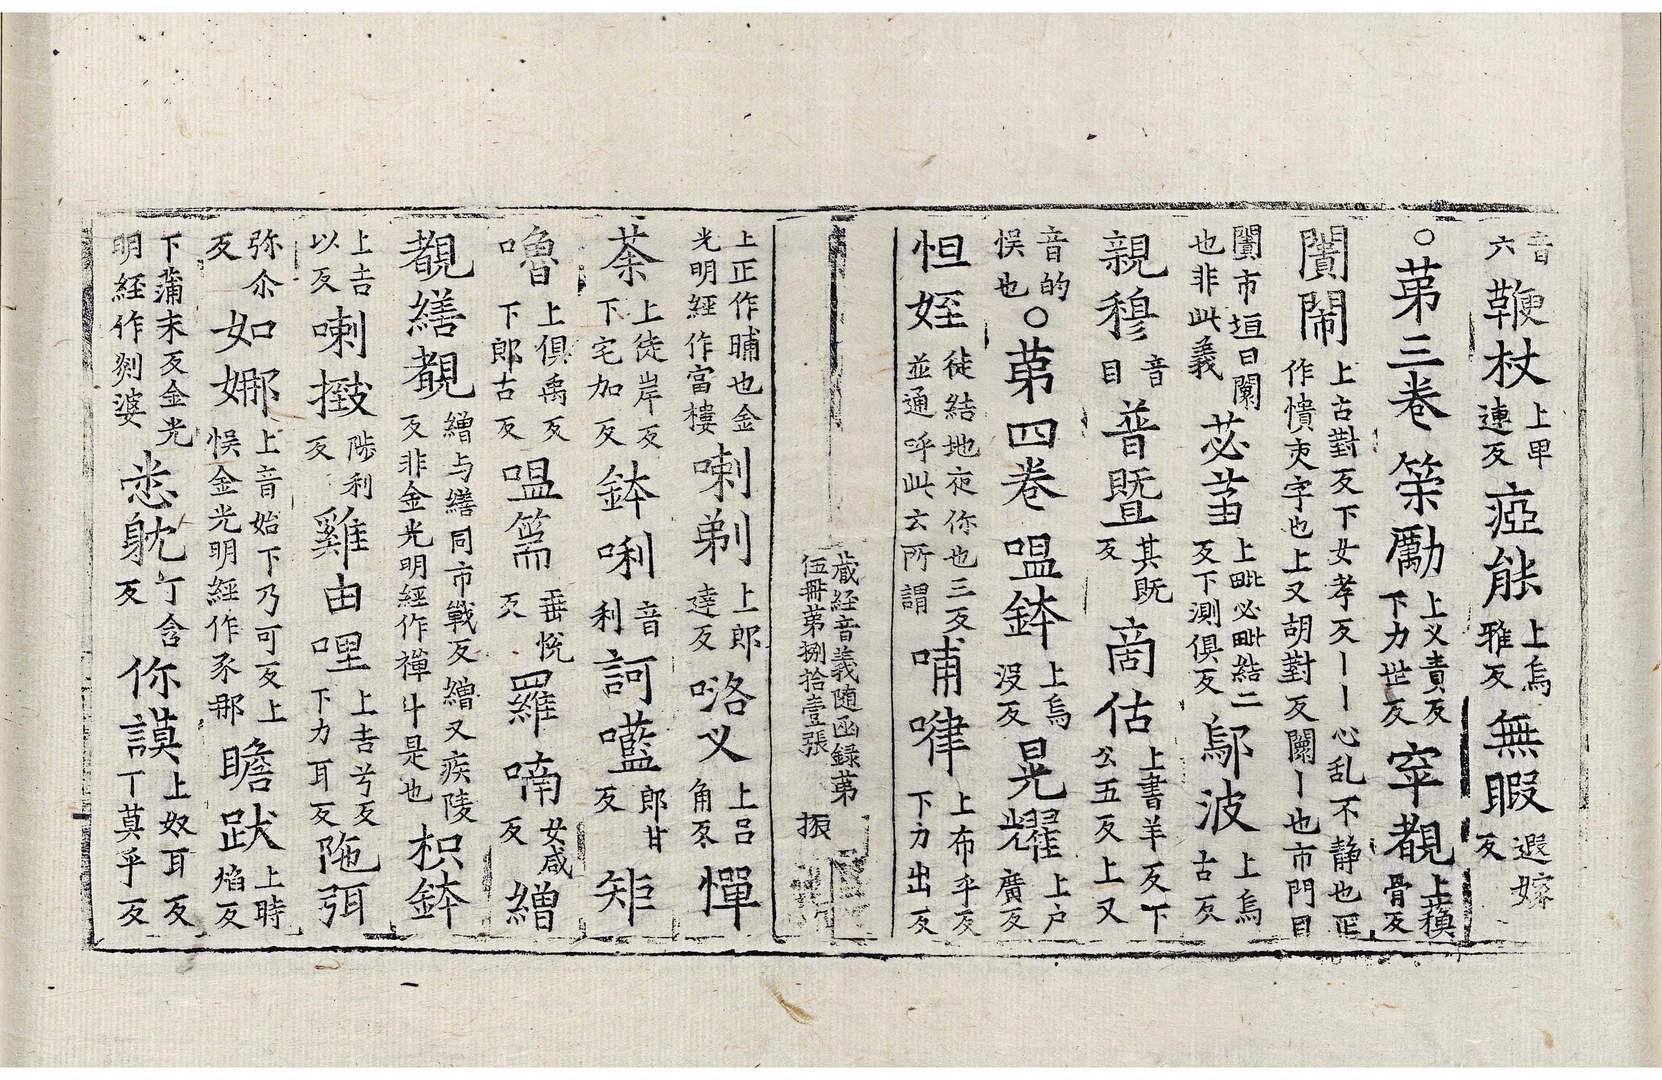 音六鞭杖上卑連反瘂能上烏雅反無暇遐嫁反
○苐三卷䇿勵上义責反下力世反𡧯覩上穳骨反
闠閙上古對反下女孝反丨丨心乱不静也正作憒㕛字也上又胡對反闤丨也市門曰
闠市垣曰闤也非此義苾蒭上毗必毗結二反下測俱反鄔波上烏古反
親穆音目普暨其既反啇估上書羊反下公五反上又
音的悮也○苐四卷嗢鉢上烏没反晃耀上户廣反
怛姪徒結地夜你也三反並通呼此云所謂哺嘩上布乎反下力出反
蔵経音義随函録苐伍冊苐捌拾壹張 振
上正作晡也金光明經作富樓喇剃上郎達反咯义上吕角反憚
荼上徒岸反下宅加反鉢唎音利訶㘕郎甘反矩
嚕上俱禹反下郎古反嗢篅垂悅反羅喃女咸反繒
覩繕覩繒与繕同市戰反繒又疾陵反非金光明經作禪斗是也枳鉢
上吉以反喇撥陟利反雞由哩上吉兮反下力耳反陁弭
弥尒反如娜上音始下乃可反上悮金光明經作豕那瞻跋上時焰反
下蒲末反金光明經作剡婆悉躭丁含反你謨上奴耳反丁莫乎反